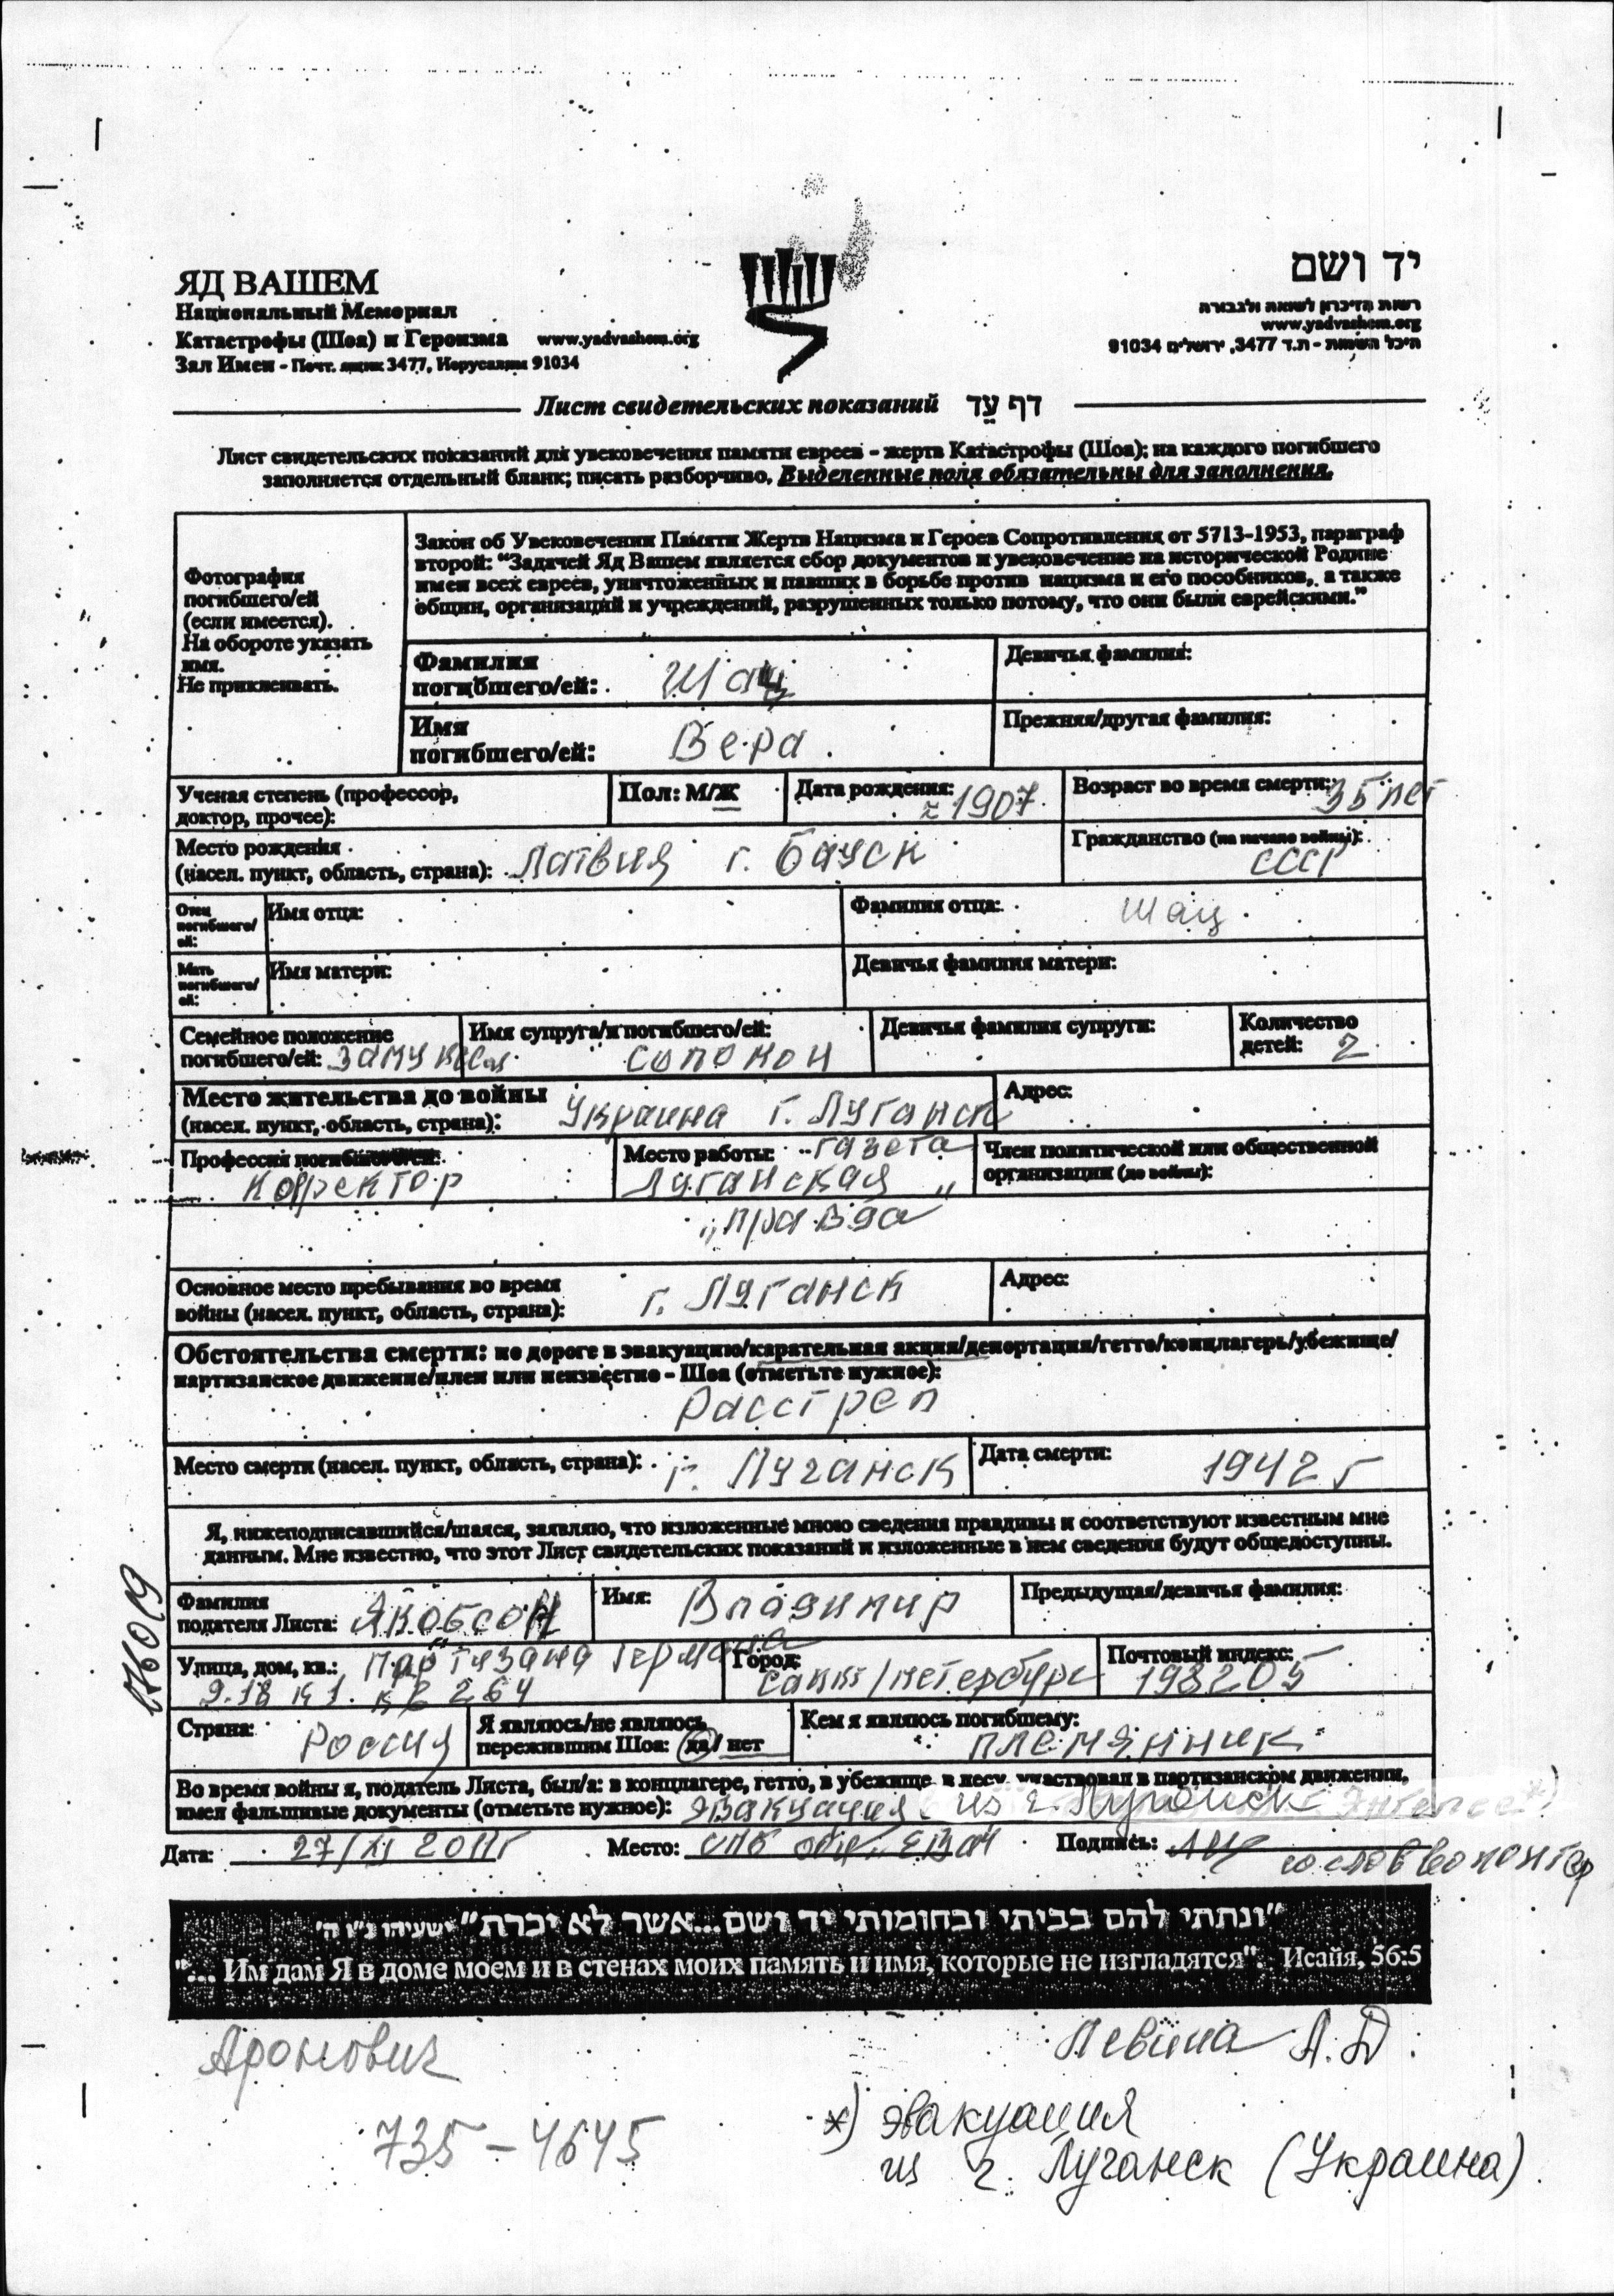 ЯД ВАШЕМ
Национальный Мемориал
Катастрофы (Шоа) и Героизма www.yadvashem.org
Зал Имен - Почт. ящик 3477, Иерусалим 91034
יד ושם
רשות הזיכרון לשואה ולגבורה
www.yadvashem.org
היכל השמות - ת.ד 3477, ירושלים 91034
Лист свидетельских показаний דף עֵד
Лист свидетельских показаний для увековечения памяти евреев - жертв Катастрофы (Шоа); на каждого погибшего
заполняется отдельный бланк; писать разборчиво. Выделенные поля обязательны для заполнения.
Фотография
погибшего/ей
(если имеется).
На обороте указать
имя.
Не приклеивать.
Закон об Увековечении Памяти Жертв Нацизма и Героев Сопротивления от 5713-1953, параграф
второй: "Задачей Яд Вашем является сбор документов и увековечение на исторической Родине
имен всех евреев, уничтоженных и павших в борьбе против нацизма и его пособников, а также
общин, организаций и учреждений, разрушенных только потому, что они были еврейскими."
Фамилия
погибшего/ей: Шац
Девичья фамилия:
Имя
погибшего/ей: Вера
Прежняя/другая фамилия:
Ученая степень (профессор,
доктор, прочее):
Пол: М/Ж
Дата рождения: ~1907
Возраст во время смерти: 35 лет
Место рождения
(насел. пункт, область, страна): Латвия г. Бауск
Гражданство (на начало войны):
СССР
Отец
погибшего/
ей:
Имя отца:
Фамилия отца: Шац
Мать
погибшего/
ей:
Имя матери:
Девичья фамилия матери:
Семейное положение
погибшего/ей: замужем
Имя супруга/и погибшего/ей:
Соломон
Девичья фамилия супруги:
Количество
детей: 2
Место жительства до войны
(насел. пункт, область, страна): Украина г. Луганск
Адрес:
Профессия погибшего/ей:
Корректор
Место работы: газета
Луганская
"правда"
Член политической или общественной
организации (до войны):
Основное место пребывания во время
войны (насел. пункт, область, страна): г. Луганск
Адрес:
Обстоятельства смерти: по дороге в эвакуацию/карательная акция/депортация/гетто/концлагерь/убежище/
партизанское движение/плен или неизвестно - Шоа (отметьте нужное):
Расстрел
Место смерти (насел. пункт, область, страна): г. Луганск
Дата смерти: 1942 г
Я, нижеподписавшийся/шаяся, заявляю, что изложенные мною сведения правдивы и соответствуют известным мне
данным. Мне известно, что этот Лист свидетельских показаний и изложенные в нем сведения будут общедоступны.
Фамилия
подателя Листа: Якобсон
Имя: Владимир
Предыдущая/девичья фамилия:
Улица, дом, кв.: Партизана Германа
д.18 к1. кв 264
Город:
Санкт/петербург
Почтовый индекс:
198205
Страна: Россия
Я являюсь/не являюсь
пережившим Шоа: да / нет
Кем я являюсь погибшему:
племянник
Во время войны я, податель Листа, был/а: в концлагере, гетто, в убежище, в лесу, участвовал в партизанском движении,
имел фальшивые документы (отметьте нужное): эвакуация из г. Луганск *)
Дата: 27/XI 2011г Место: СПб Подпись: со слов волонтер
276019
"ונתתי להם בביתי ובחומותי יד ושם...אשר לא יכרת" ישעיהו נ"ו ה'
"... Им дам Я в доме моем и в стенах моих память и имя, которые не изгладятся". Исайя, 56:5
Аронович
735-4645
Левина А.Д.
*) эвакуация
из г. Луганск (Украина).